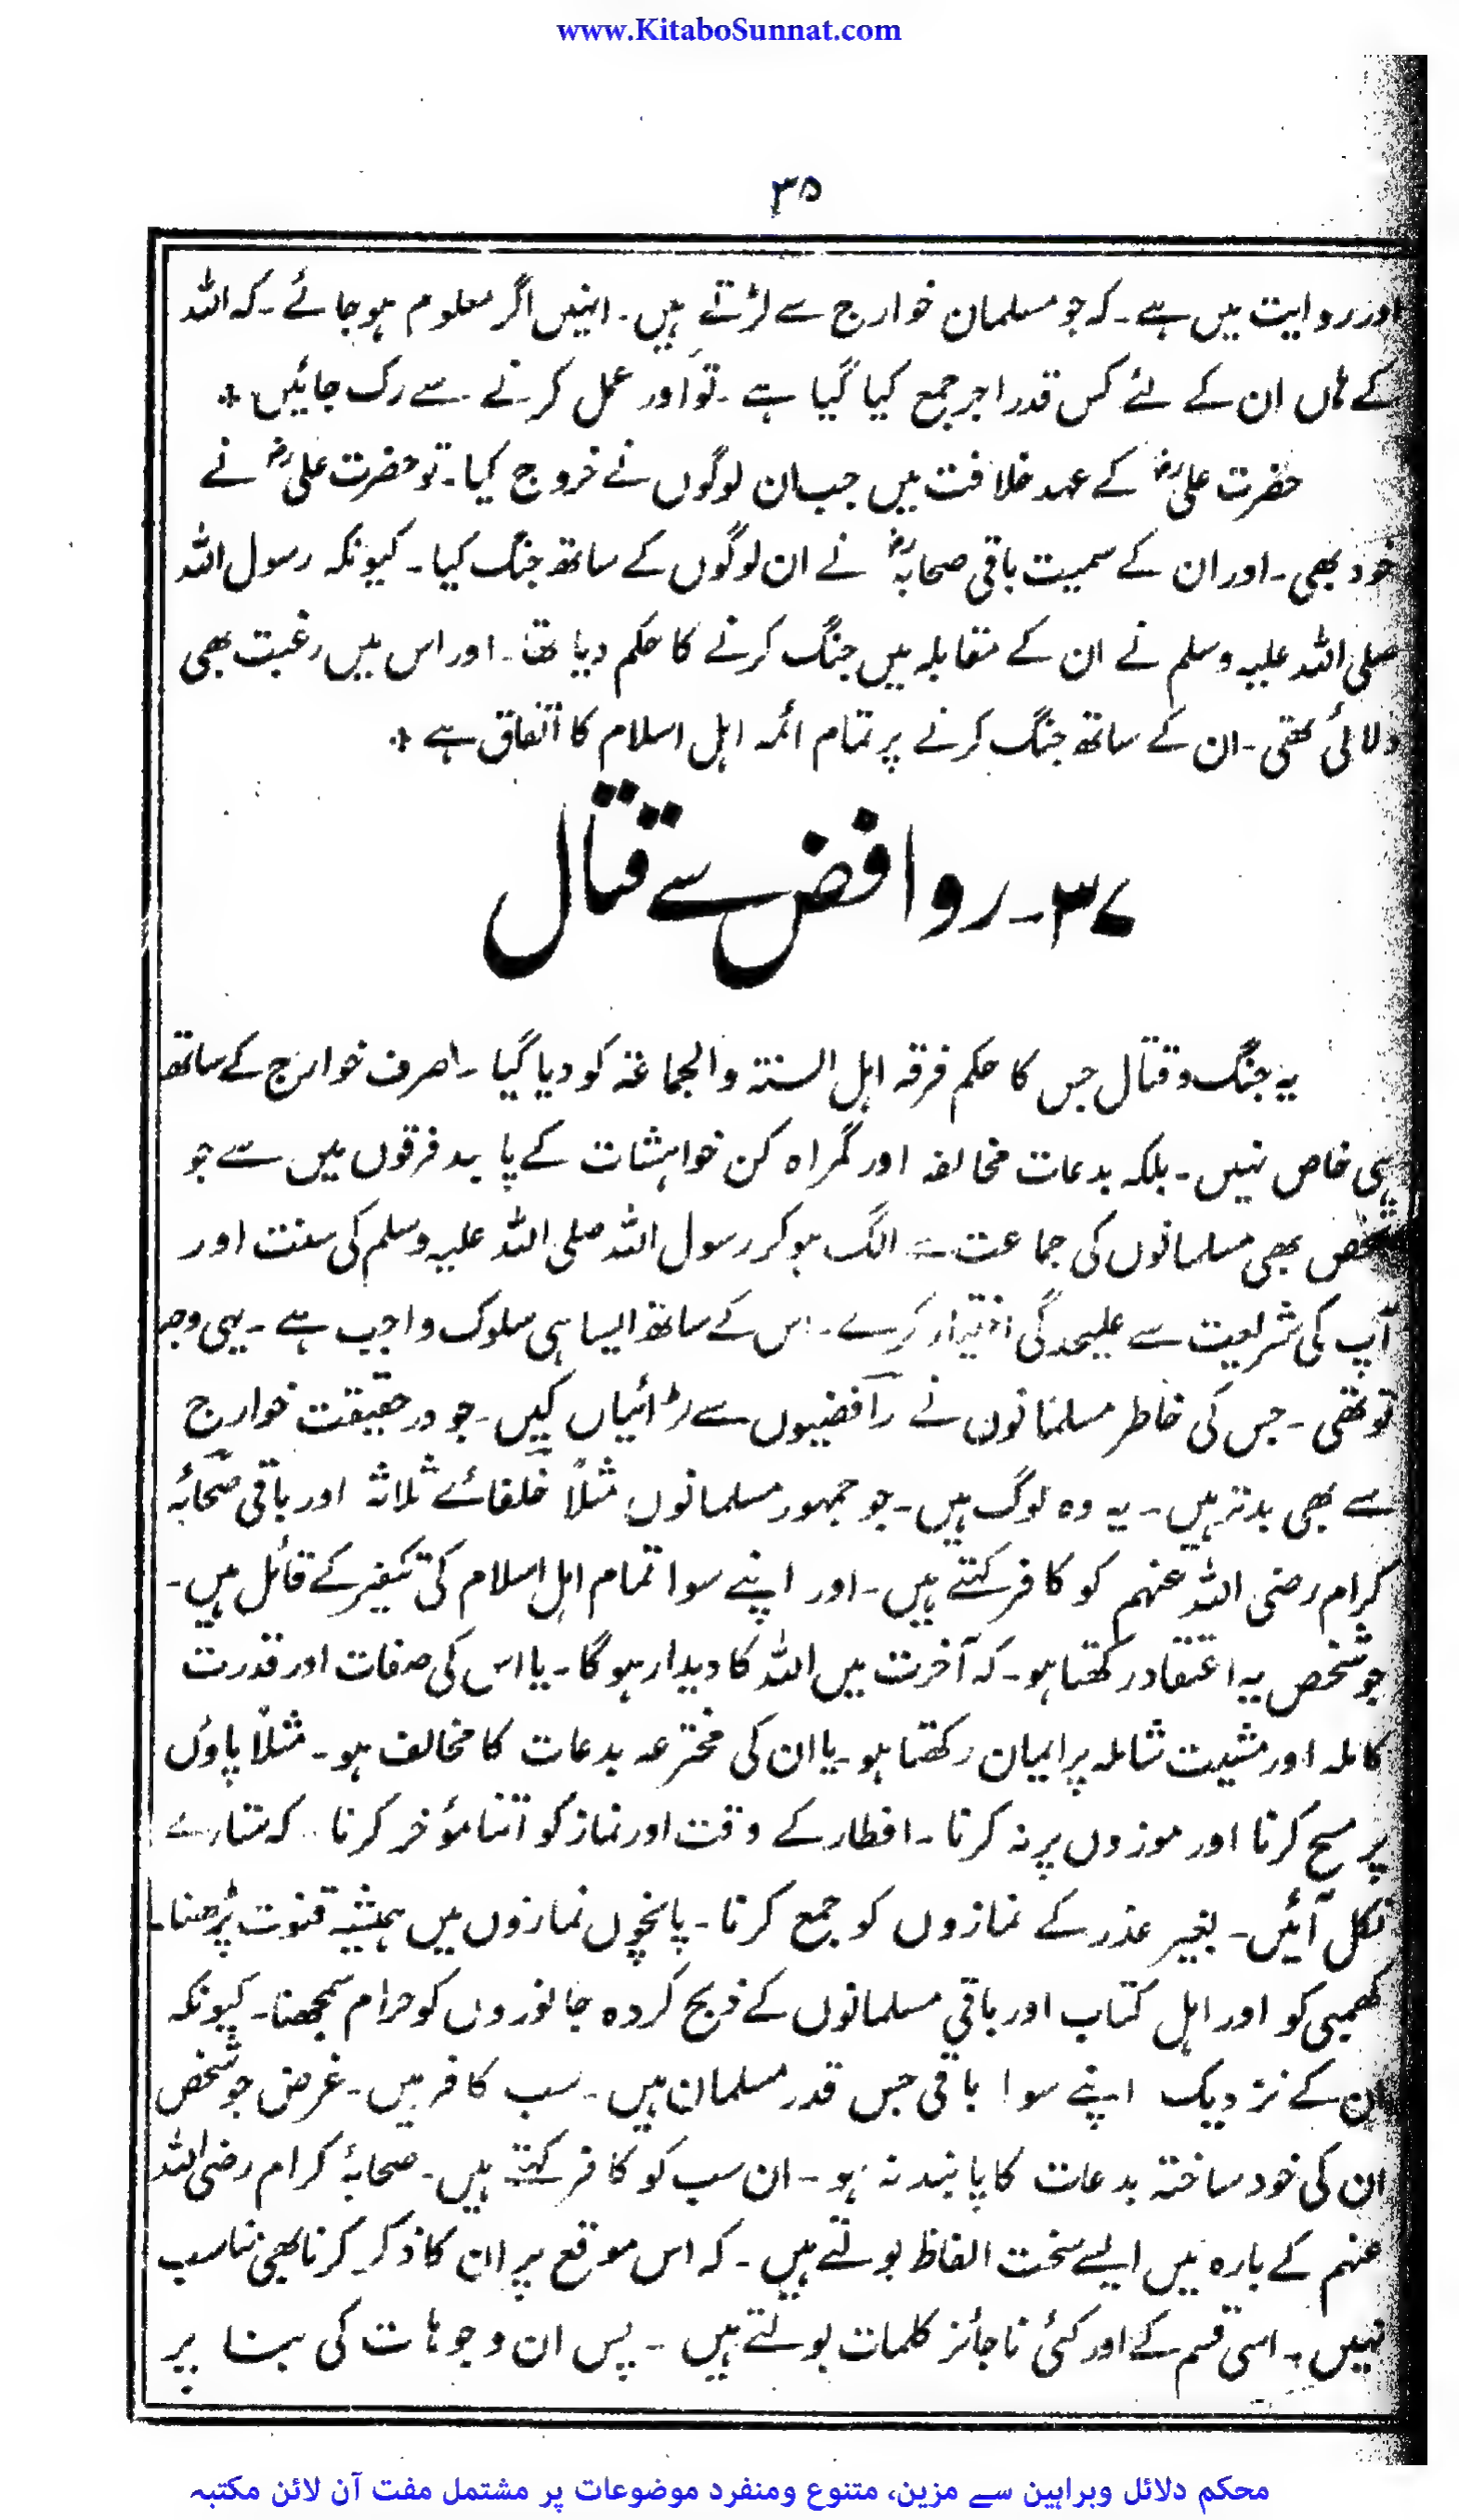 www.KitaboSunnat.com
۳۵
اور روایت میں ہے۔ کہ جو مسلمان خوارج سے لڑتے ہیں۔ انہیں اگر معلوم ہو جائے۔ کہ اللہ
کے ہاں ان کے لئے کس قدر اجر جمع کیا گیا ہے۔ تو اور عمل کرنے سے رک جائیں ۞
حضرت علیؓ کے عہد خلافت میں جب ان لوگوں نے خروج کیا۔ تو حضرت علیؓ نے
خود بھی۔ اور ان کے سمیت باقی صحابہؓ نے ان لوگوں کے ساتھ جنگ کیا۔ کیونکہ رسول اللہ
صلی اللہ علیہ وسلم نے ان کے مقابلہ میں جنگ کرنے کا حکم دیا تھا۔ اور اس میں رغبت بھی
دلائی تھی۔ ان کے ساتھ جنگ کرنے پر تمام ائمہ اہل اسلام کا اتفاق ہے ۞
۳۷۔ روافض سے قتال
یہ جنگ و قتال جس کا حکم فرقہ اہل السنۃ والجماعۃ کو دیا گیا۔ صرف خوارج کے ساتھ
ہی خاص نہیں۔ بلکہ بدعات مخالفہ اور گمراہ کن خواہشات کے پابند فرقوں میں سے جو
شخص بھی مسلمانوں کی جماعت سے الگ ہو کر رسول اللہ صلی اللہ علیہ وسلم کی سنت اور
آپ کی شریعت سے علیحدگی اختیار کرے۔ اس کے ساتھ ایسا ہی سلوک واجب ہے۔ یہی وجہ
تو تھی۔ جس کی خاطر مسلمانوں نے رافضیوں سے لڑائیاں کیں۔ جو در حقیقت خوارج
سے بھی بدتر ہیں۔ یہ وہ لوگ ہیں۔ جو جمہور مسلمانوں مثلاً خلفائے ثلاثہ اور باقی صحابہ
کرام رضی اللہ عنہم کو کافر کہتے ہیں۔ اور اپنے سوا تمام اہل اسلام کی تکفیر کے قائل ہیں۔
جو شخص یہ اعتقاد رکھتا ہو۔ کہ آخرت میں اللہ کا دیدار ہو گا۔ یا اس کی صفات اور قدرت
کاملہ اور مشیت شاملہ پر ایمان رکھتا ہو۔ یا ان کی مخترعہ بدعات کا مخالف ہو۔ مثلاً پاؤں
پر مسح کرنا اور موزوں پر نہ کرنا۔ افطار کے وقت اور نماز کو اتنا مؤخر کرنا۔ کہ ستارے
نکل آئیں۔ بغیر عذر کے نمازوں کو جمع کرنا۔ پانچوں نمازوں میں ہمیشہ قنوت پڑھنا۔
کھمبی کو اور اہل کتاب اور باقی مسلمانوں کے ذبح کردہ جانوروں کو حرام سمجھنا۔ کیونکہ
ان کے نزدیک اپنے سوا باقی جس قدر مسلمان ہیں۔ سب کافر ہیں۔ غرض جو شخص
ان کی خود ساختہ بدعات کا پابند نہ ہو۔ ان سب کو کافر کہتے ہیں۔ صحابۂ کرام رضی اللہ
عنہم کے بارہ میں ایسے سخت الفاظ بولتے ہیں۔ کہ اس موقع پر ان کا ذکر کرنا بھی مناسب
نہیں۔ اسی قسم کے اور کئی ناجائز کلمات بولتے ہیں۔ پس ان وجوہات کی بنا پر
محکم دلائل وبراہین سے مزین، متنوع ومنفرد موضوعات پر مشتمل مفت آن لائن مکتبہ